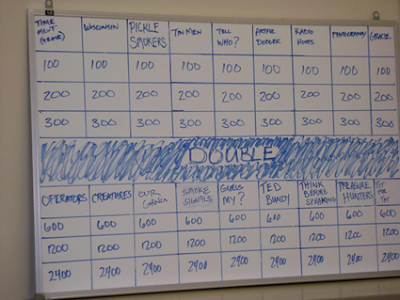 WISCONSIN PICKLE SMOKERS TIN MEN TELL WHO? ARTFUL DODGER RADIO HOPS GRACIE
100 100 100 100 100 100 100 100 100
200 200 200 200 200 200 200 200 200
300 300 300 300 300 300 300 300 300
DOUBLE
OPERATORS CREATURES OUR SMOKE SIGNALS GUESS MY? TED BUNDY THINK BEFORE SPEAKING TREASURE HUNTERS TIT FOR TAT
600 600 600 600 600 600 600 600 600
1200 1200 1200 1200 1200 1200 1200 1200 1200
2400 2400 2400 2400 2400 2400 2400 2400 2400